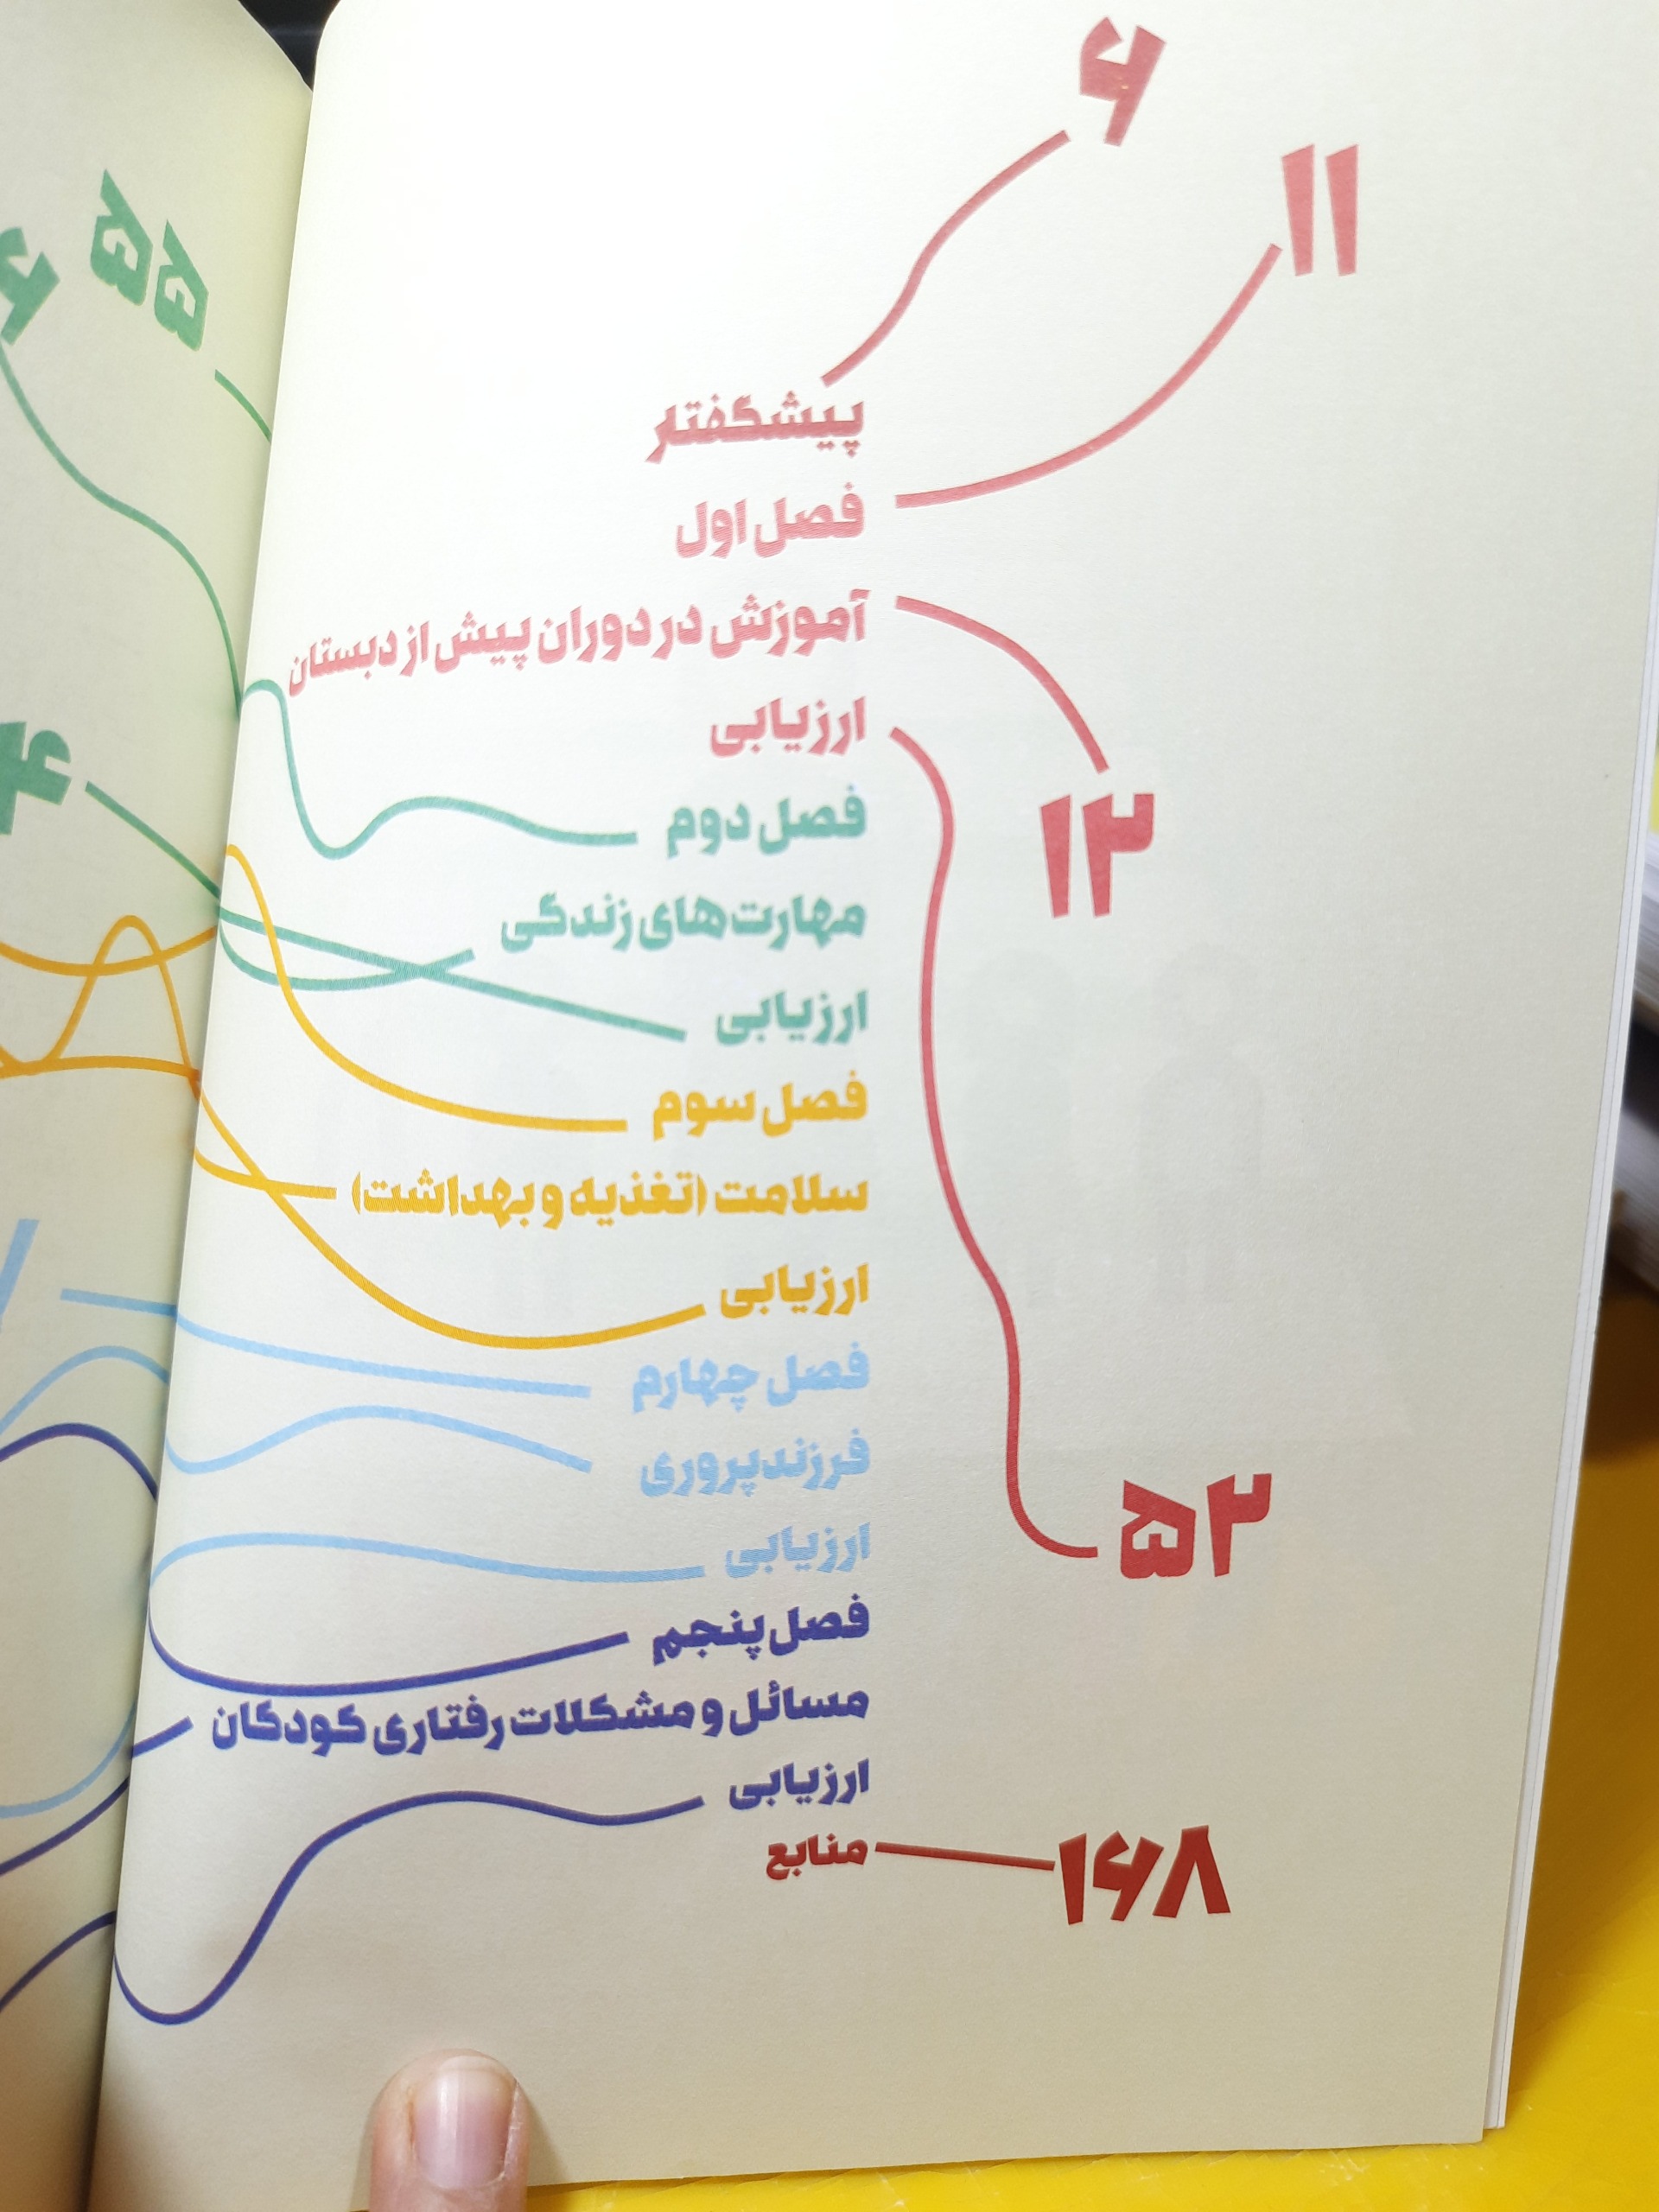 ۶
۱۱
پیشگفتار
فصل اول
آموزش در دوران پیش از دبستان
ارزیابی
۱۲
فصل دوم
مهارت‌های زندگی
ارزیابی
فصل سوم
سلامت (تغذیه و بهداشت)
ارزیابی
فصل چهارم
فرزندپروری
ارزیابی
۵۲
فصل پنجم
مسائل و مشکلات رفتاری کودکان
ارزیابی
منابع
۱۶۸
۵۵